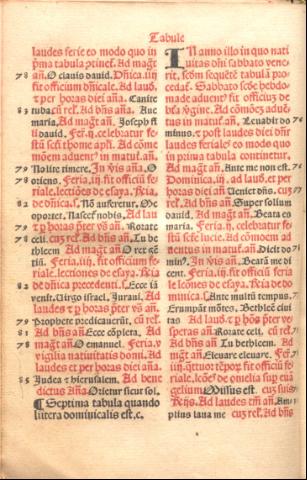 Tabule
laudes ferie eo modo quo in
p̄ma tabula ꝯtinet̄. Ad mag̃t
78 an̄. O clauis dauid. Dñica.iiij
fit officium dn̄icale. Ad laud̄.
⁊ per horas diei an̄a. Canite
83 tuba cū rel̄. Ad bn̄s an̄a. Aue
maria. Ad mag̃t an̄. Joseph fi
li dauid. Feria.ij. celebratur fe
stū scti thome apli. Ad cōme
mōem aduent̄ in matut̄. an̄.
79 Noli te timere. In v̄is an̄a. O
78 oriens. Feria.iij. fit officiū fe
riale. lectiões de esaya. R̄cia
82 de dn̄ica.s. Nō auferetur. Me
oportet. Nascet̄ nobis. Ad lau
79 ⁊ p̱ horas p̄ter vs̄ an̄. Rorate
78 celi. cuȝ rel̄. Ad bn̄s an̄. Tu be
thleem Ad mag̃t an̄. O rex gē
tiū. Feria.iiij. fit officium fe
riale. lectiones de esaya. R̄cia
82 de dn̄ica precedenti.s. Ecce iā
venit. Virgo israel. Juraui. Ad
laudes ⁊ p̱ horas p̄ter vs̄ an̄.
79 Prophete predicauerūt. cū rel̄.
81 Ad bn̄s an̄a Ecce cōpleta. Ad
78 mag̃t an̄. O emanuel. Feria.v
vigilia natiuitatis domi. Ad
laudes et per horas diei an̄a.
85 Judea ⁊ hierusalem. Ad bene
dictus an̄a. Orietur sicut sol.
¶ Septima tabula quando
littera dominicalis est.c.
In anno illo in quo nati
uitas dn̄i sabbato vene
rit. scdm sequētē tabulā pro
cedat̄. Sabbato scōe hebdo
made aduent̄ fit officiuȝ de
bt̄a v̄gine. Ad cōmōeȝ aduē
tus in matut̄. an̄. Leuabit do
minus. ⁊ post laudes diei dn̄r
laudes feriales eo modo quo
in prima tabula continetur.
Ad mag̃t an̄. Ante me non est.
Dominica.iij. ad laud̄. et per
horas diei an̄ Veniet dn̄s. cuȝ
rel̄. Ad bn̄s an̄. Super solium
dauid. Ad mag̃t an̄. Beata es
maria. Feria.ij. celebratur fe
stū scte lucie. Ad cōmoem ad
uentus in matut̄. an̄. Dicit do
min⁹. In v̄is an̄. Beatā me di
cent. Feria.iij. fit officiū feria
le lectiones de esaya. R̄cia de do
minica.s. Ante multū tempus.
Erumpāt mōtes. Bethleē ciui
tas Ad laud̄. ⁊ p̱ hor̄s p̄ter ve
speras an̄. Rorate celi. cū rel̄.
Ad bn̄s an̄ Tu bethleem. Ad
mag̃t an̄. Eleuare eleuare. Feria
iiij. quatuor tēpoȝ. fit officiū fe
riale. lcōes de omelia sup eua
gelium Missus est. cum suis
R̄cijs. Ad laudes tm̄ an̄. Am
plius laua me cuȝ rel̄. Ad bn̄s
76
79